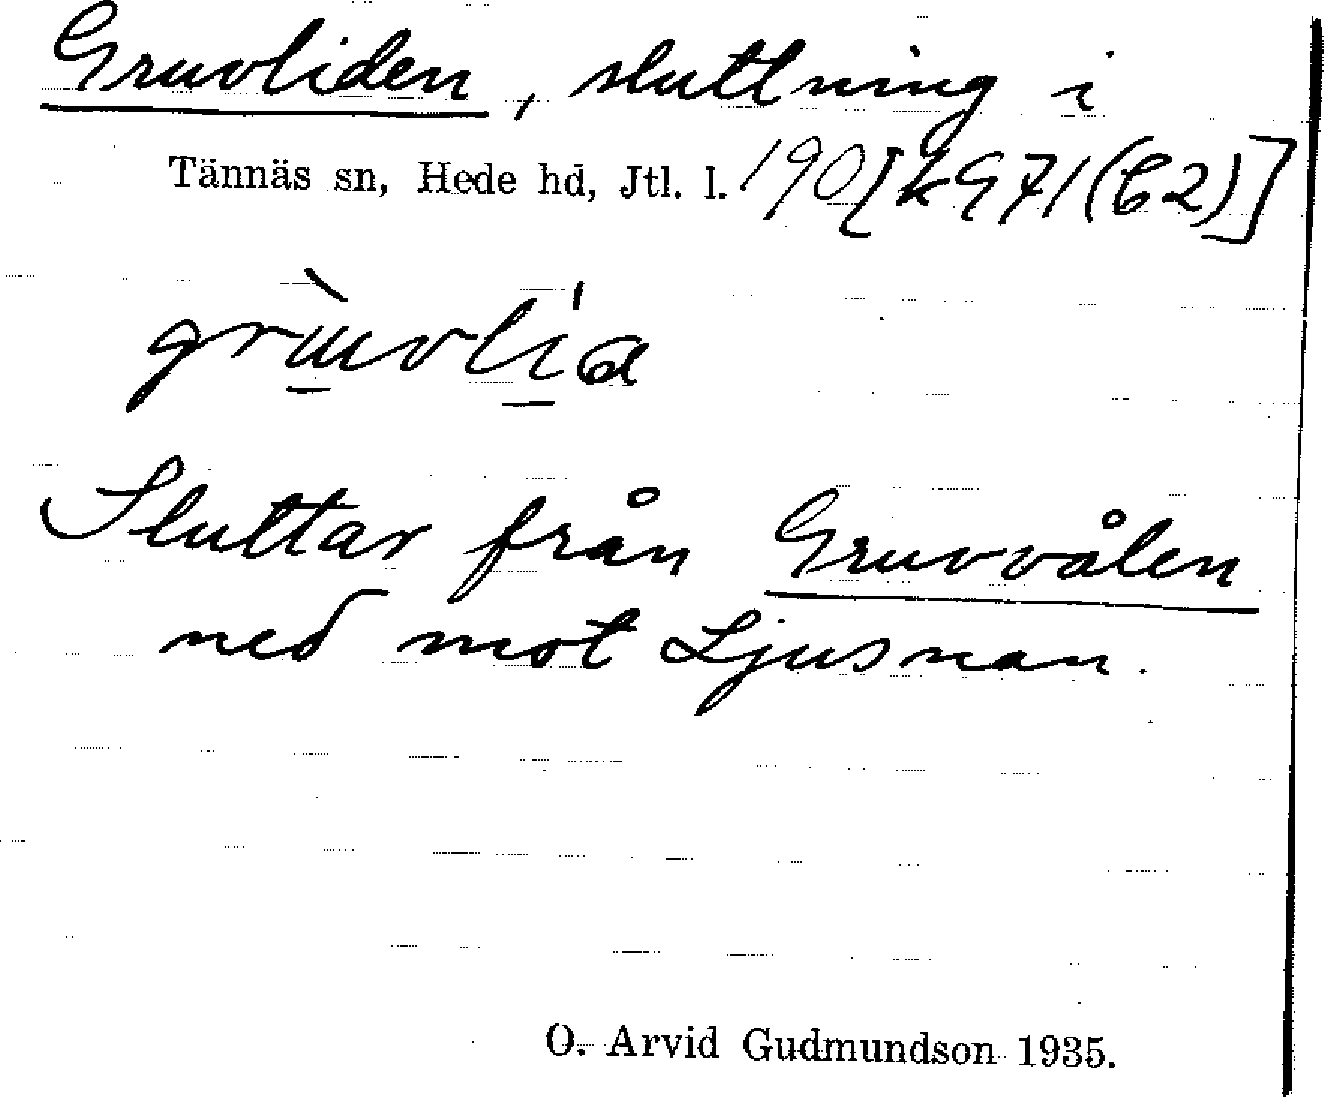 Gruvliden, sluttning i
Tännäs sn, Hede hd, Jtl. l. 190 [k971(C2)]
grùvlía
Sluttar från Gruvvålen
ned mot Ljusnan.
O. Arvid Gudmundson 1935.